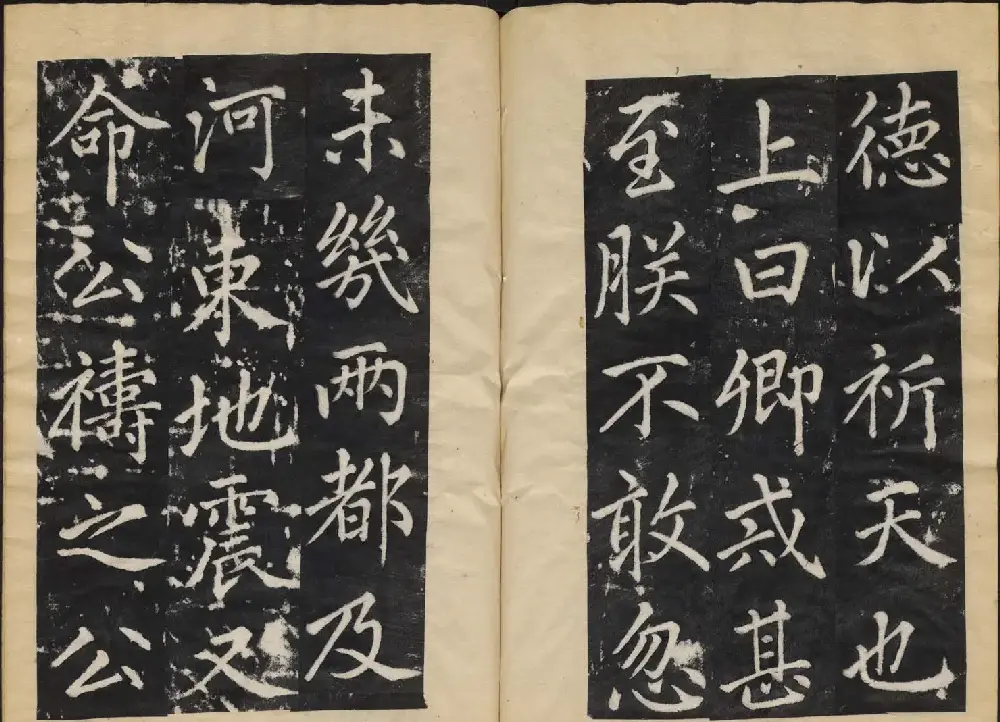 德以祈天也
上曰卿戒甚
至朕不敢忽
未幾兩都及
河東地震又
命公禱之公